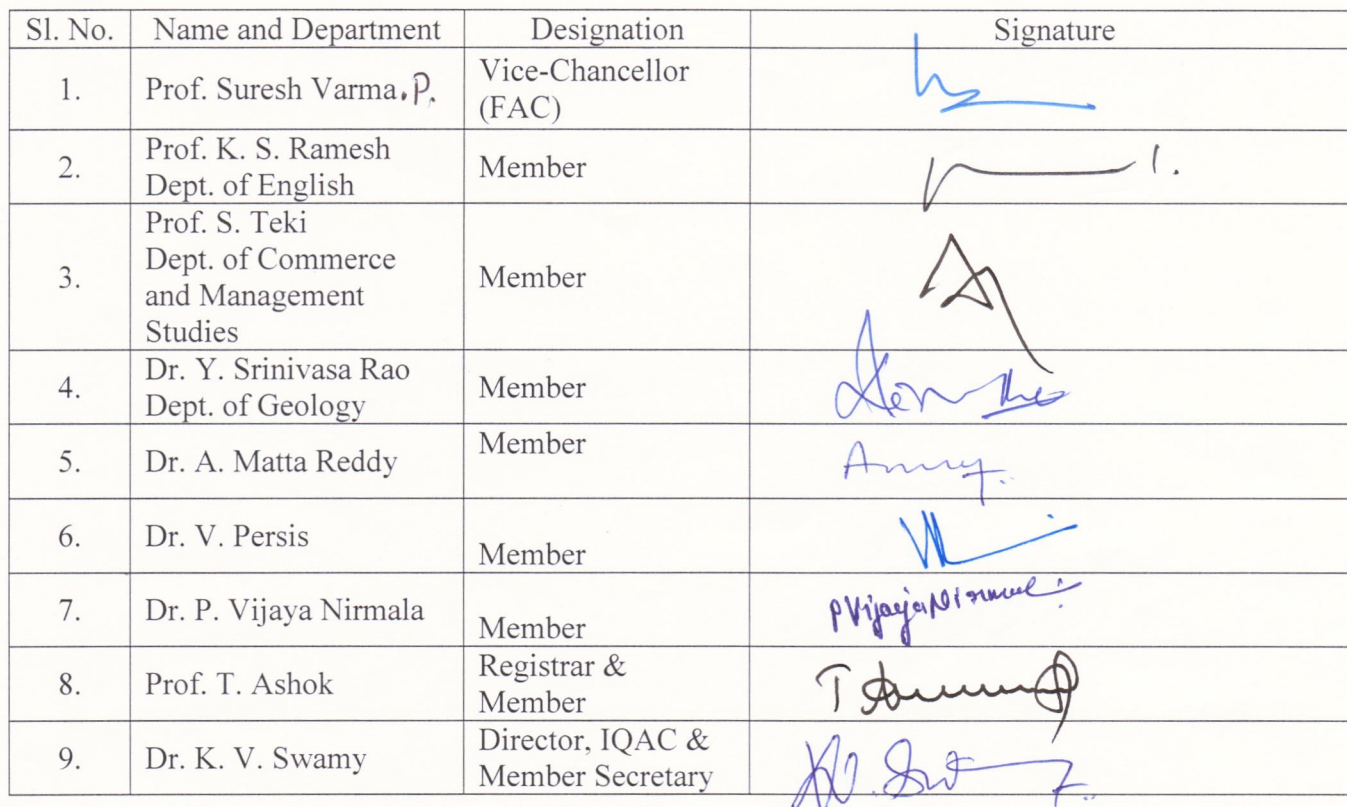 Sl. No. Name and Department Designation Signature
1. Prof. Suresh Varma.P. Vice-Chancellor
(FAC)
2. Prof. K. S. Ramesh
Dept. of English Member
3. Prof. S. Teki
Dept. of Commerce
and Management
Studies Member
4. Dr. Y. Srinivasa Rao
Dept. of Geology Member
5. Dr. A. Matta Reddy Member
6. Dr. V. Persis Member
7. Dr. P. Vijaya Nirmala Member P Vijaya Nirmal
8. Prof. T. Ashok Registrar &
Member
9. Dr. K. V. Swamy Director, IQAC &
Member Secretary